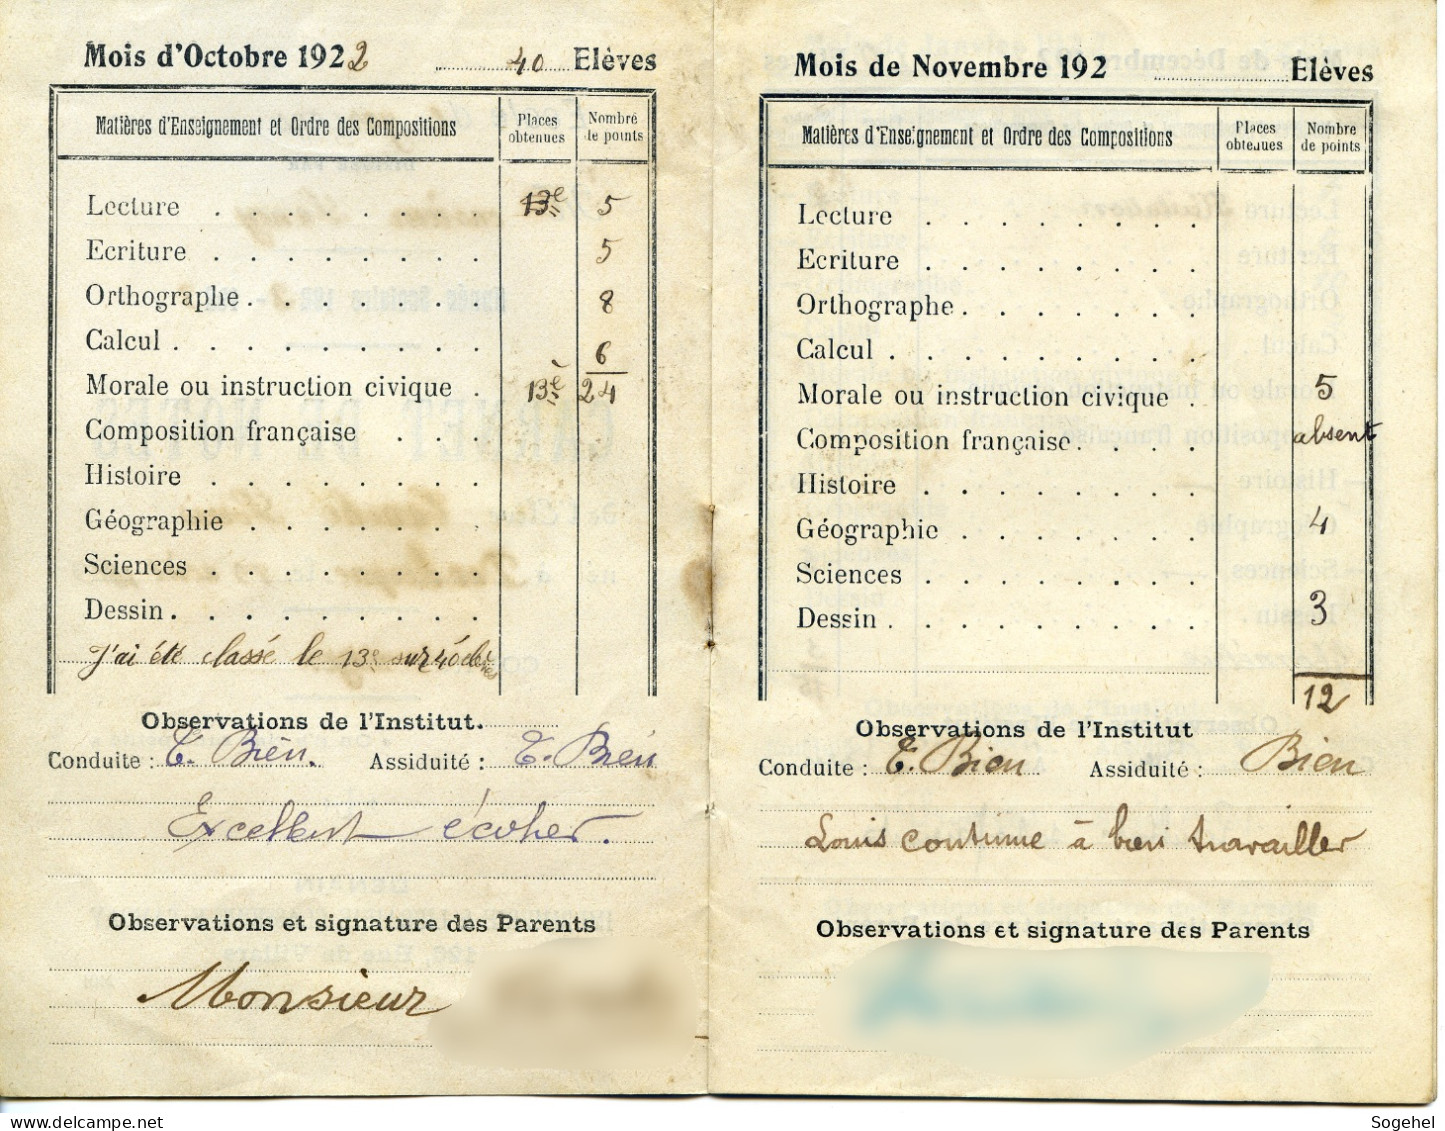 Mois d'Octobre 1922 40 Elèves
Matières d'Enseignement et Ordre des Compositions Places obtenues Nombre de points
Lecture 13e 5
Ecriture 5
Orthographe 8
Calcul 6
Morale ou instruction civique 13è 24
Composition française
Histoire
Géographie
Sciences
Dessin
J'ai été classé le 13e sur 40 élèves
Observations de l'Institut.
Conduite : T. Bien. Assiduité : T. Bien
Excellent écolier.
Observations et signature des Parents
Monsieur
Mois de Novembre 192 Elèves
Matières d'Enseignement et Ordre des Compositions Places obtenues Nombre de points
Lecture
Ecriture
Orthographe
Calcul
Morale ou instruction civique 5
Composition française absent
Histoire
Géographie 4
Sciences
Dessin 3
12
Observations de l'Institut
Conduite : T. Bien Assiduité : Bien
Louis continue à bien travailler
Observations et signature des Parents
Sogehel